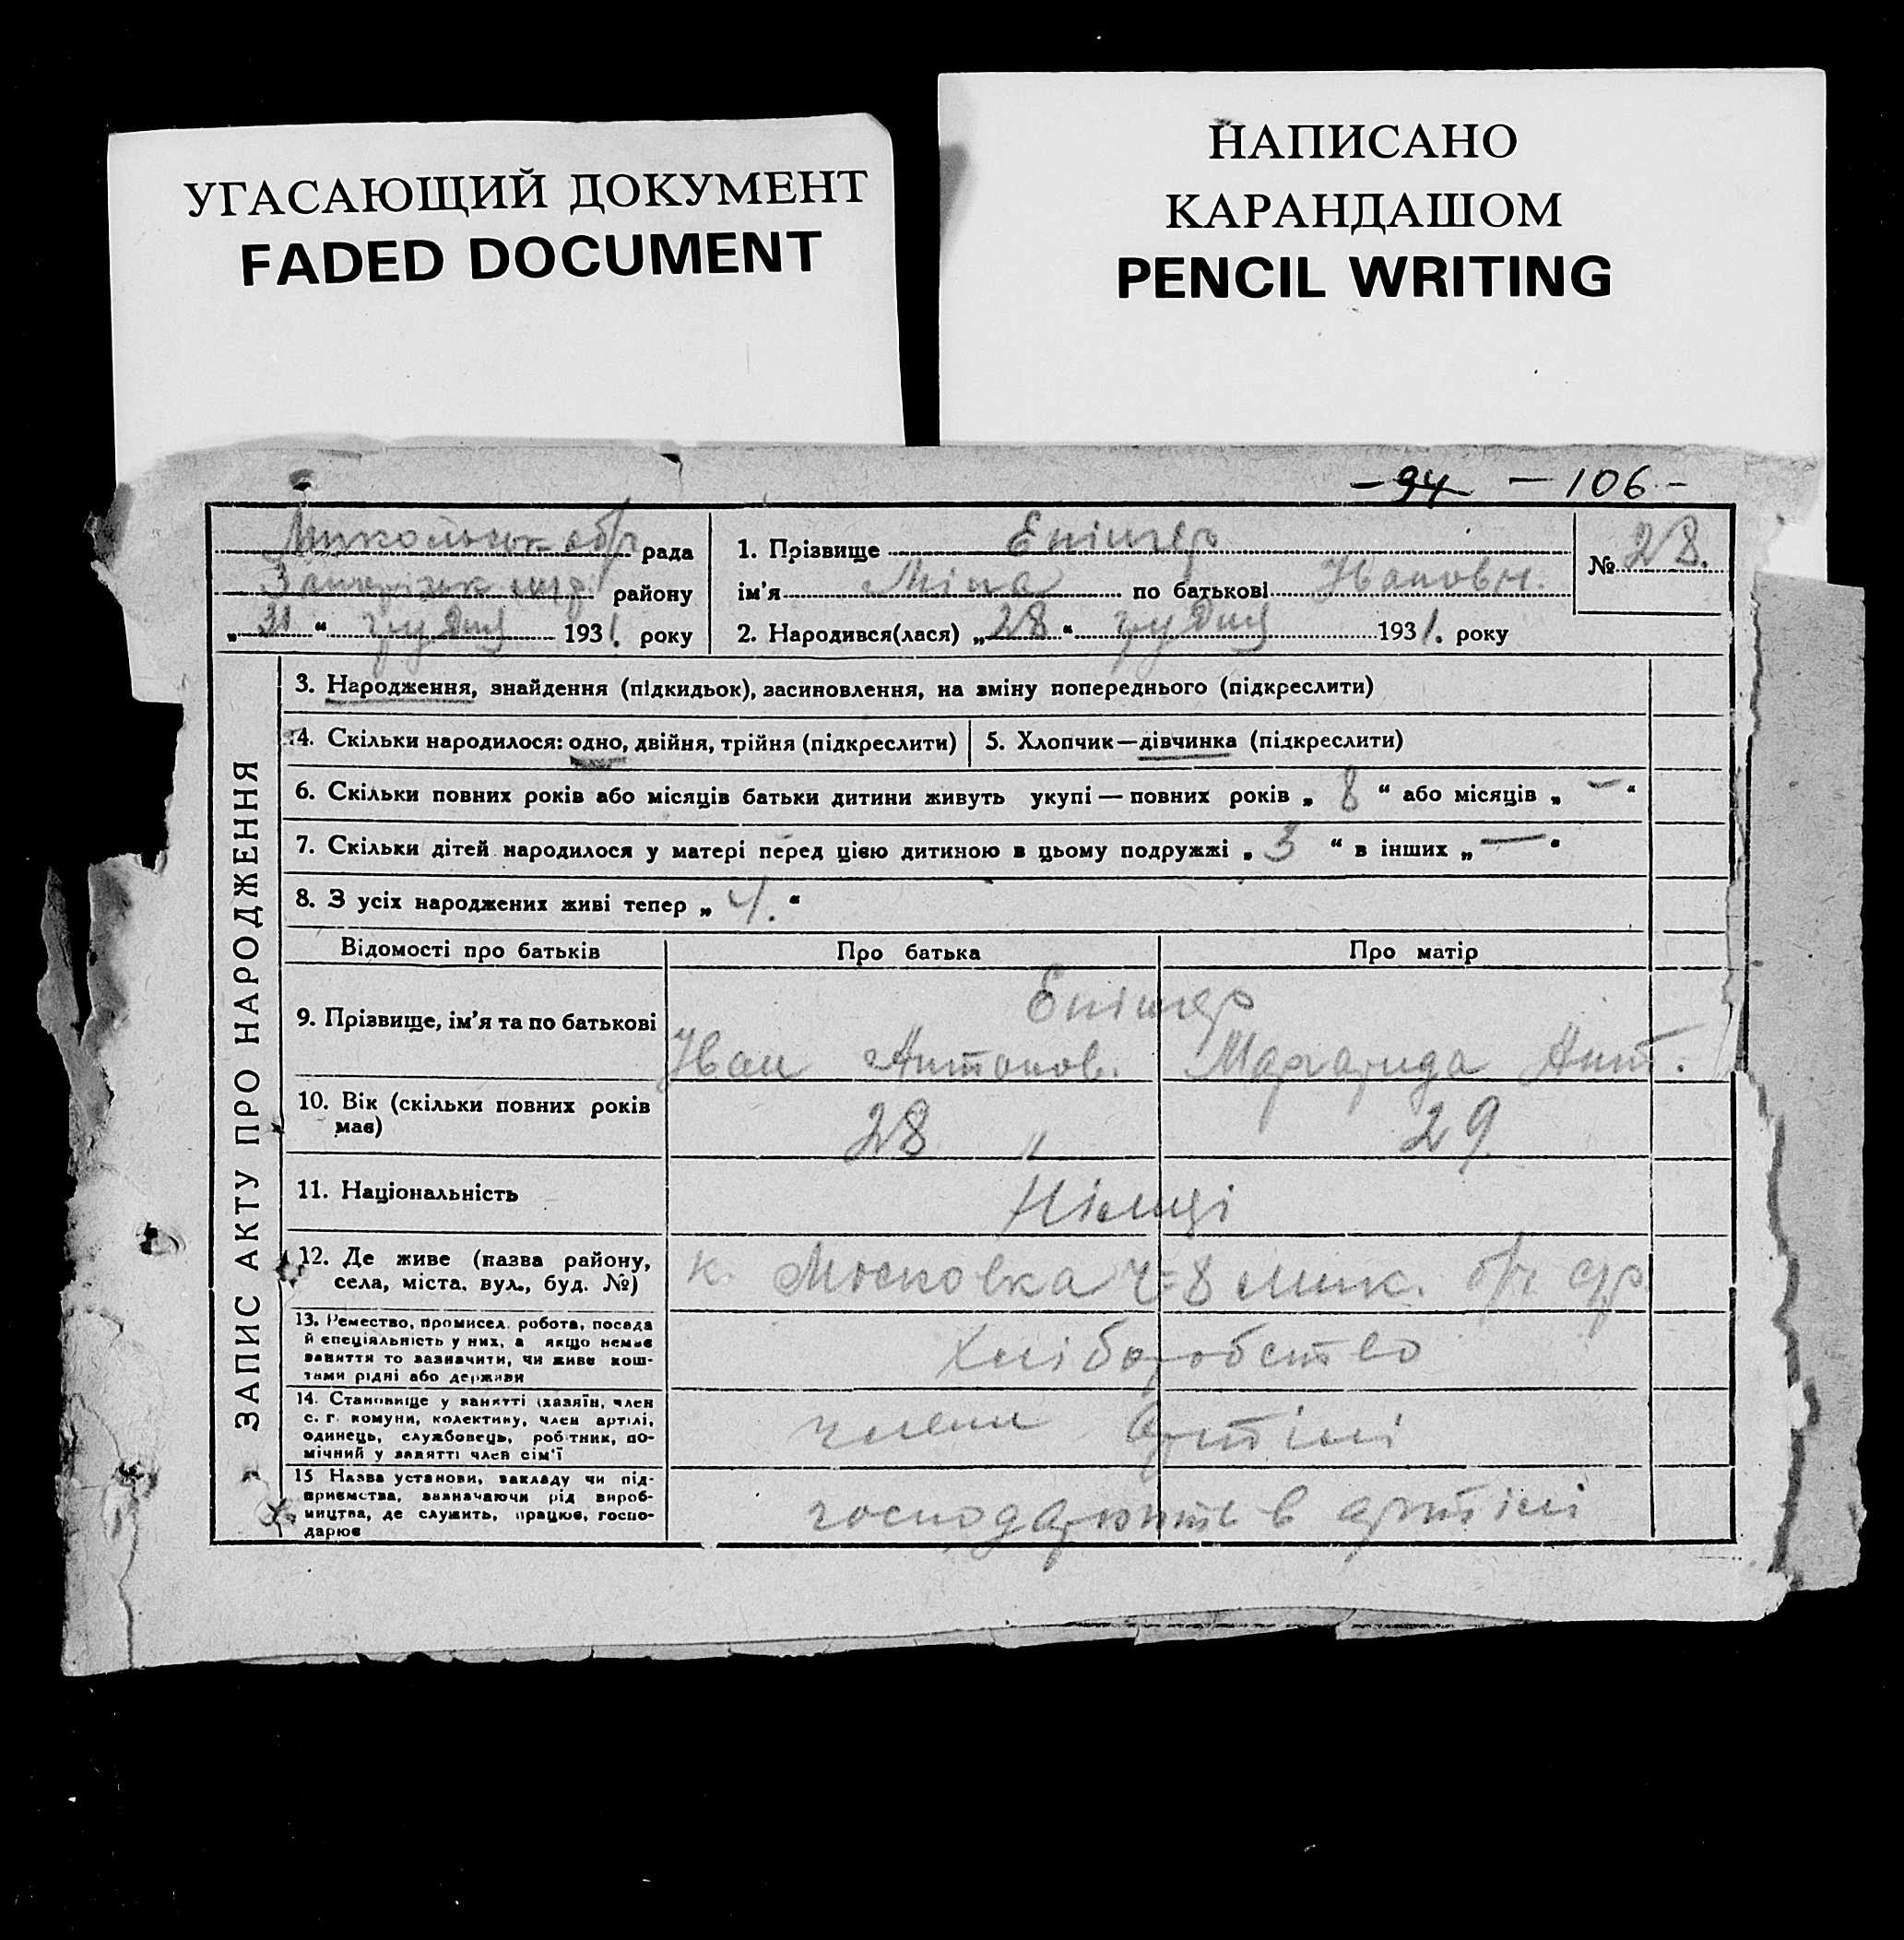 УГАСАЮЩИЙ ДОКУМЕНТ
FADED DOCUMENT
НАПИСАНО
КАРАНДАШОМ
PENCIL WRITING
- 94 - 106 -
рада
району
„ 31 “ грудня 1931. року
1. Прізвище Епінгер
ім'я Міна по батькові Івановн.
№ 28.
2. Народився(лася) „ 28 “ грудня 1931. року
ЗАПИС АКТУ ПРО НАРОДЖЕННЯ
3. Народження, знайдення (підкидьок), засиновлення, на зміну попереднього (підкреслити)
4. Скільки народилося: одно, двійня, трійня (підкреслити)
5. Хлопчик—дівчинка (підкреслити)
6. Скільки повних років або місяців батьки дитини живуть укупі — повних років „ 8 “ або місяців „ — “
7. Скільки дітей народилося у матері перед цією дитиною в цьому подружжі „ 3 “ в інших „ — “
8. З усіх народжених живі тепер „ 4. “
Відомості про батьків Про батька Про матір
9. Прізвище, ім'я та по батькові
Епінгер
Іван Антонов. Маргарида Ант.
10. Вік (скільки повних років має)
28 " 29
11. Національність
Німці
12. Де живе (назва району,
села, міста, вул., буд. №)
к. Московка ч=8 мик.
13. Ремество, промисел, робота, посада
й спеціяльність у них, а якщо немає
заняття то зазначити, чи живе кош-
тами рідні або держави
Хліборобство
14. Становище у занятті (хазяїн, член
с. г. комуни, колективу, член артілі,
одинець, службовець, робітник, по-
мічний у занятті член сім'ї
члени артілі
15 Назва установи, закладу чи під-
приємства, зазначаючи рід вироб-
ництва, де служить, працює, госпо-
дарює
господарюють в артілі